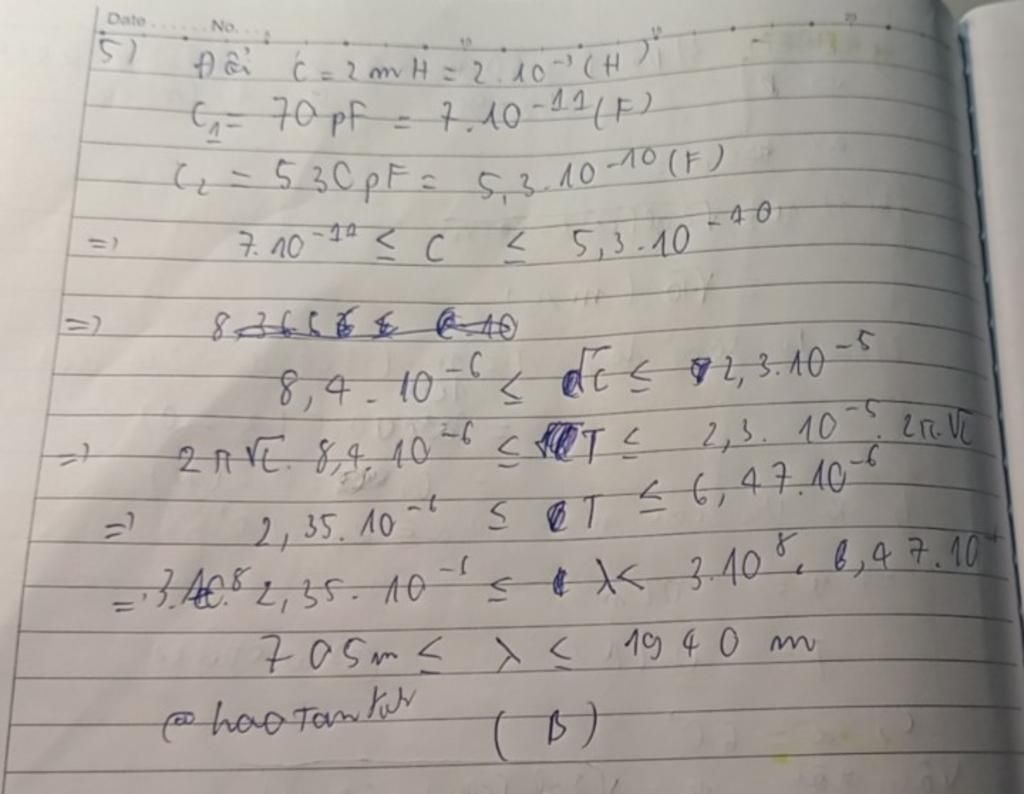 Date ...... No. ...
5) Đổi C = 2 mH = 2.10⁻³ (H)
C₁ = 70 pF = 7.10⁻¹¹ (F)
C₂ = 530 pF = 5,3.10⁻¹⁰ (F)
=> 7.10⁻¹¹ ≤ C ≤ 5,3.10⁻¹⁰
=>
8,4.10⁻⁶ ≤ √C ≤ 2,3.10⁻⁵
=> 2π√L. 8,4.10⁻⁶ ≤ T ≤ 2,3.10⁻⁵. 2π.√L
=> 2,35.10⁻⁶ ≤ T ≤ 6,47.10⁻⁶
= 3.10⁸. 2,35.10⁻⁶ ≤ λ < 3.10⁸. 6,47.10
705m ≤ λ ≤ 1940 m
(B)